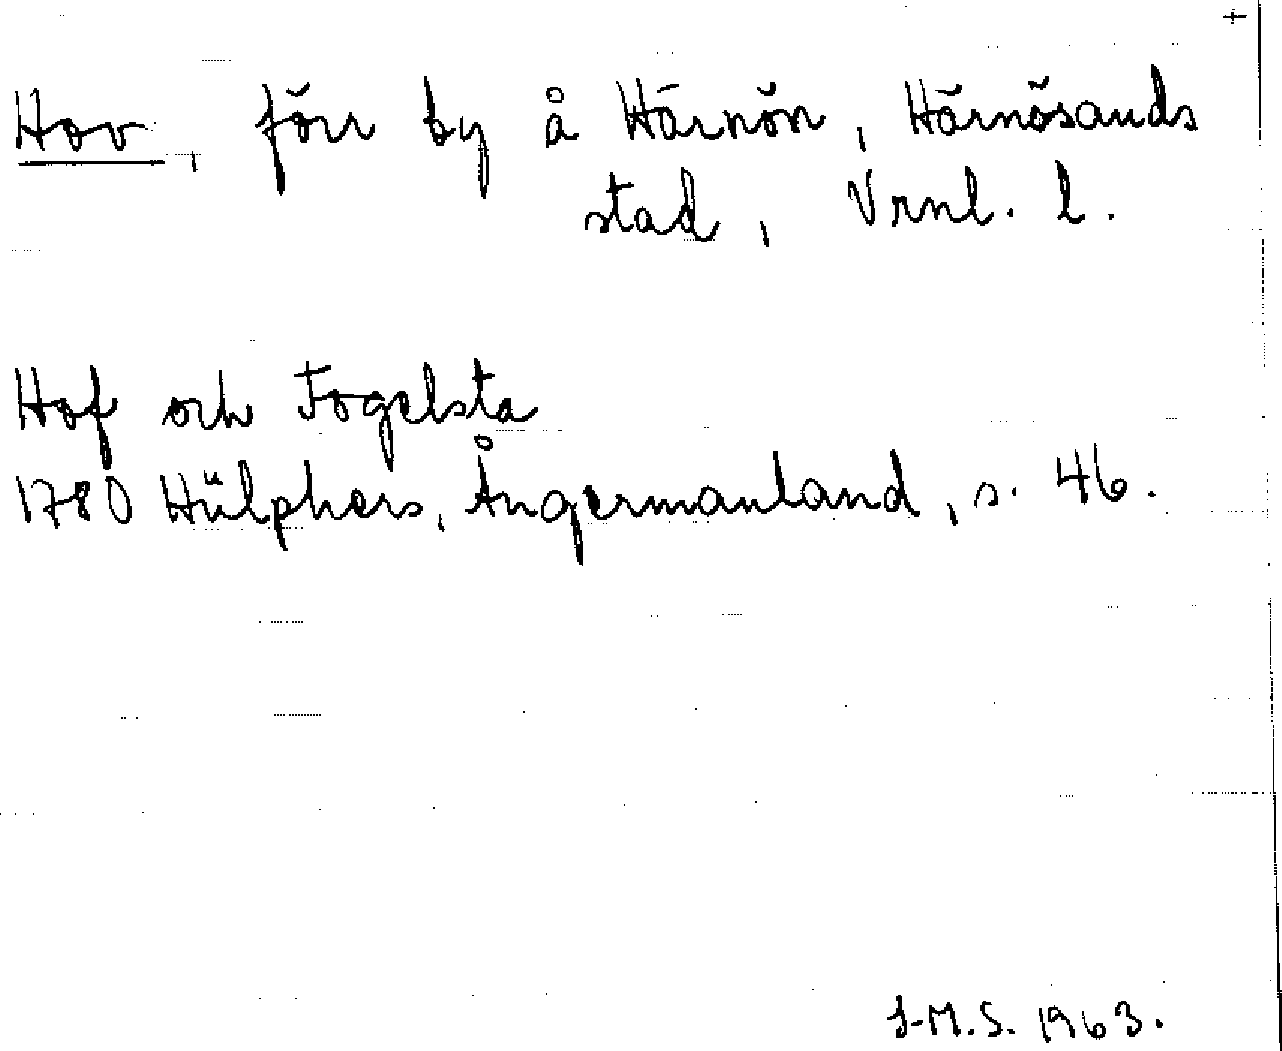 +
Hov, förr by å Härnön, Härnösands
stad, Vrnl. l.
Hof och Fogelsta
1780 Hülphers, Ångermanland, s. 46.
I-M.S. 1963.